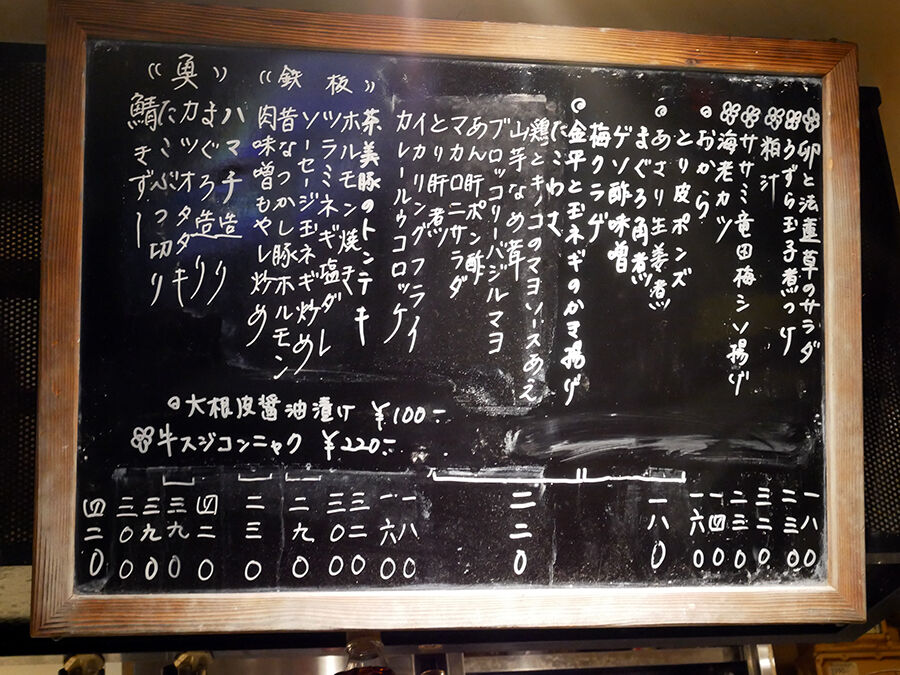 ◦卯と法蓮草のサラダ
うずら玉子煮つけ
粕汁
ササミ竜田梅シソ揚げ
海老カツ
おから
とり皮ポンズ
あさり生姜煮
まぐろ角煮
ゲソ酢味噌
梅クラゲ
金平と玉ネギのかき揚げ
たこわさ
鶏とキノコのマヨソースあえ
山芋なめ茸
ブロッコリーバジルマヨ
あん肝ポン酢
マカロニサラダ
とり肝煮
イカリングフライ
カレールウコロッケ
《鉄板》
茶美豚のトンテキ
ホルモン焼き
ツラミネギ塩ダレ
ソーセージ玉ネギ炒め
昔なつかし豚ホルモン
肉味噌もやし炒め
《魚》
ハマチ造り
まぐろ造り
カツオタタキ
たこぶつ切り
鯖きずし
大根皮醤油漬け ¥100-
牛スジコンニャク ¥220-
一八0
二三0
三二0
二三0
一四0
一六0
一八0
二二0
一八0
一六0
三二0
三00
二九0
二三0
四二0
三九0
三九0
三00
四二0